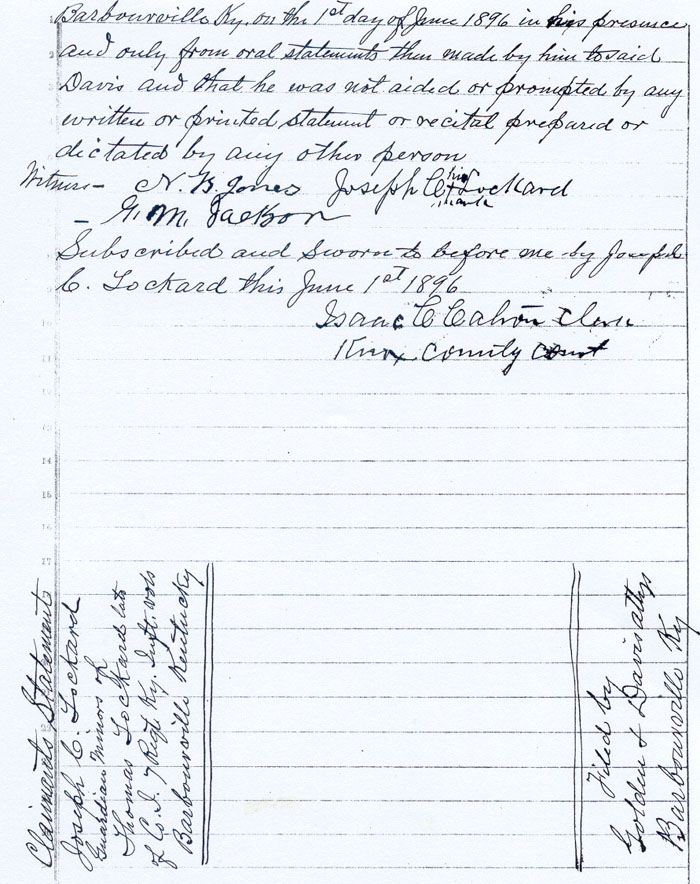 Barbourville Ky. on the 1st day of June 1896 in his presence
and only from oral statements then made by him to said
Davis and that he was not aided or prompted by any
written or printed statement or recital prepared or
dictated by any other person
Witness - N. B. Jones Joseph C. his x mark Lockard
- G. M. Jackson
Subscribed and sworn to before me by Joseph
C. Lockard this June 1st 1896
Isaac C Clerk
Knox County Court
14
15
16
17
Claimants Statement
Joseph C. Lockard
Guardian Minors of
Thomas Lockard late
of Co. I. 7 Regt. Ky. Inft. vols
Barbourville Kentucky
Filed by
Golden & Davis attys
Barbourville Ky